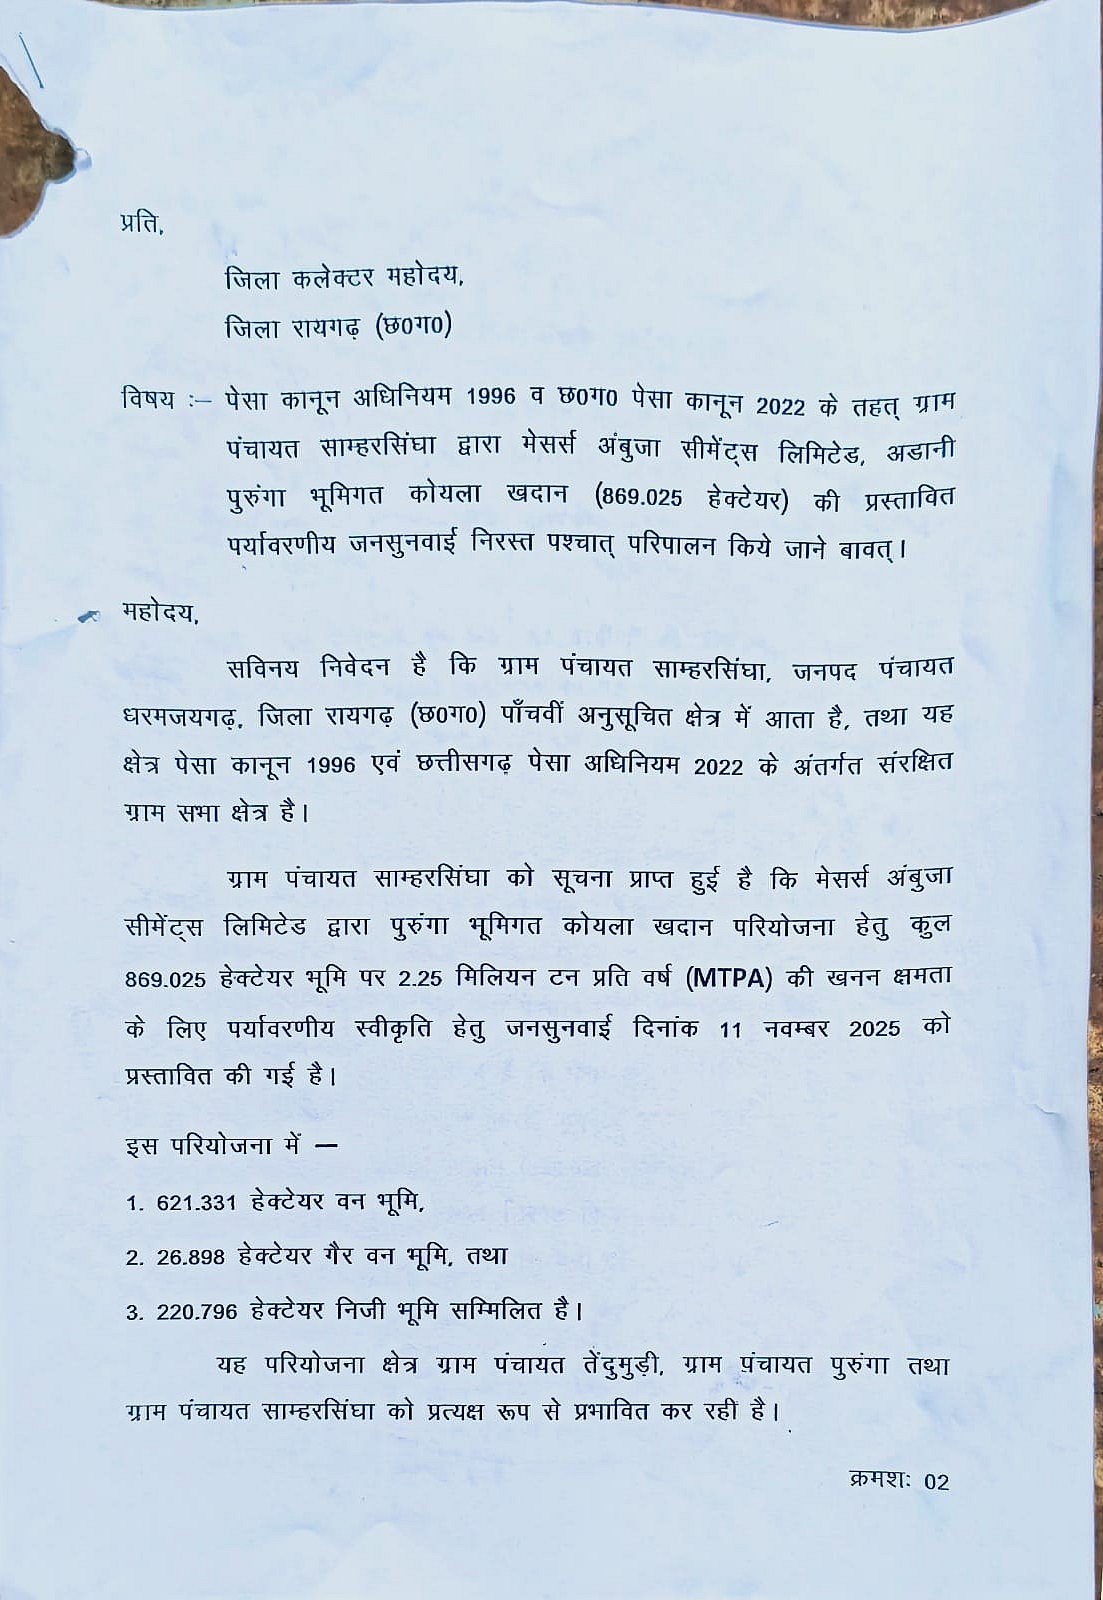 प्रति,
जिला कलेक्टर महोदय,
जिला रायगढ़ (छ0ग0)
विषय :– पेसा कानून अधिनियम 1996 व छ0ग0 पेसा कानून 2022 के तहत् ग्राम
पंचायत साम्हरसिंघा द्वारा मेसर्स अंबुजा सीमेंट्स लिमिटेड, अडानी
पुरुंगा भूमिगत कोयला खदान (869.025 हेक्टेयर) की प्रस्तावित
पर्यावरणीय जनसुनवाई निरस्त पश्चात् परिपालन किये जाने बावत्।
महोदय,
सविनय निवेदन है कि ग्राम पंचायत साम्हरसिंघा, जनपद पंचायत
धरमजयगढ़, जिला रायगढ़ (छ0ग0) पाँचवीं अनुसूचित क्षेत्र में आता है, तथा यह
क्षेत्र पेसा कानून 1996 एवं छत्तीसगढ़ पेसा अधिनियम 2022 के अंतर्गत संरक्षित
ग्राम सभा क्षेत्र है।
ग्राम पंचायत साम्हरसिंघा को सूचना प्राप्त हुई है कि मेसर्स अंबुजा
सीमेंट्स लिमिटेड द्वारा पुरुंगा भूमिगत कोयला खदान परियोजना हेतु कुल
869.025 हेक्टेयर भूमि पर 2.25 मिलियन टन प्रति वर्ष (MTPA) की खनन क्षमता
के लिए पर्यावरणीय स्वीकृति हेतु जनसुनवाई दिनांक 11 नवम्बर 2025 को
प्रस्तावित की गई है।
इस परियोजना में —
1. 621.331 हेक्टेयर वन भूमि,
2. 26.898 हेक्टेयर गैर वन भूमि, तथा
3. 220.796 हेक्टेयर निजी भूमि सम्मिलित है।
यह परियोजना क्षेत्र ग्राम पंचायत तेंदुमुड़ी, ग्राम पंचायत पुरुंगा तथा
ग्राम पंचायत साम्हरसिंघा को प्रत्यक्ष रूप से प्रभावित कर रही है।
क्रमशः 02